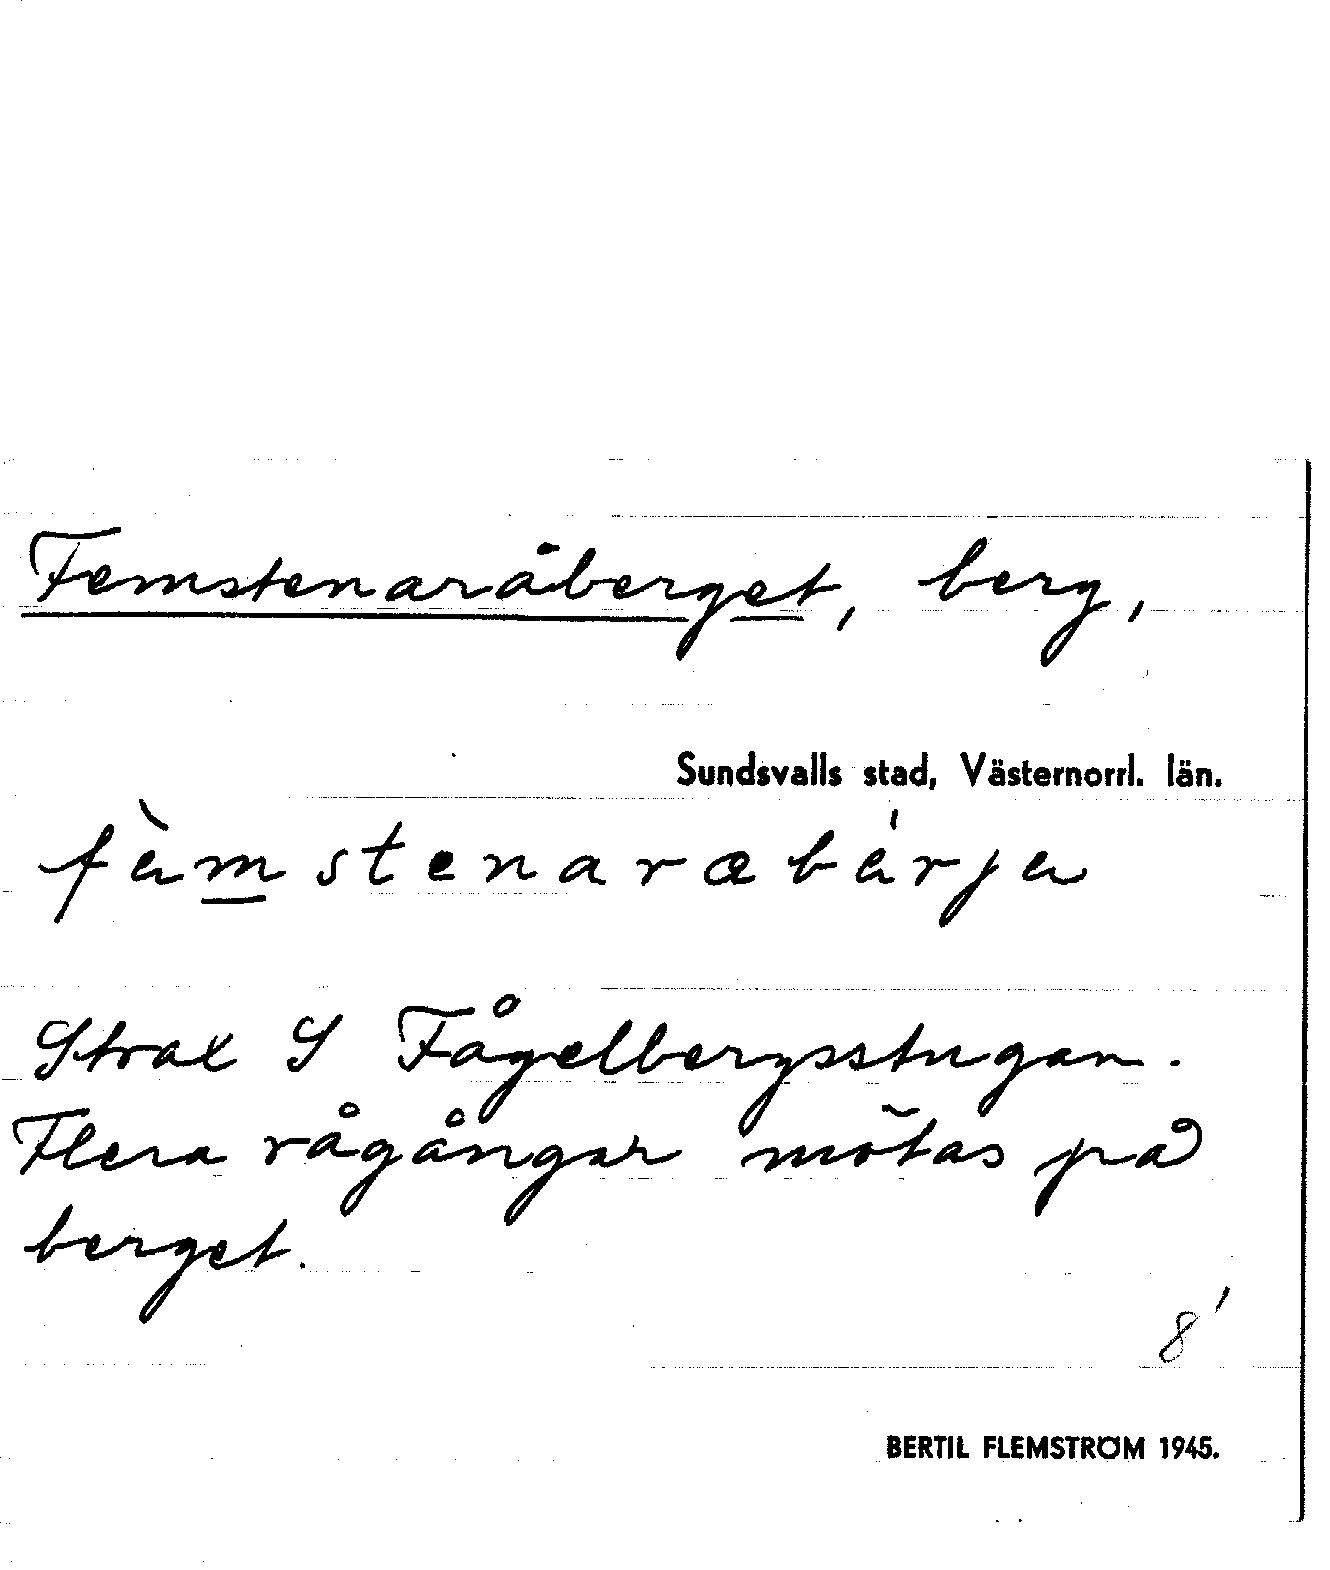 Femstenaråberget, berg,
Sundsvalls stad, Västernorrl. län.
fàmstenaræbárja
Strax S Fågelbergsstugan.
Flera rågångar mötas på
berget.
8'
BERTIL FLEMSTRÖM 1945.